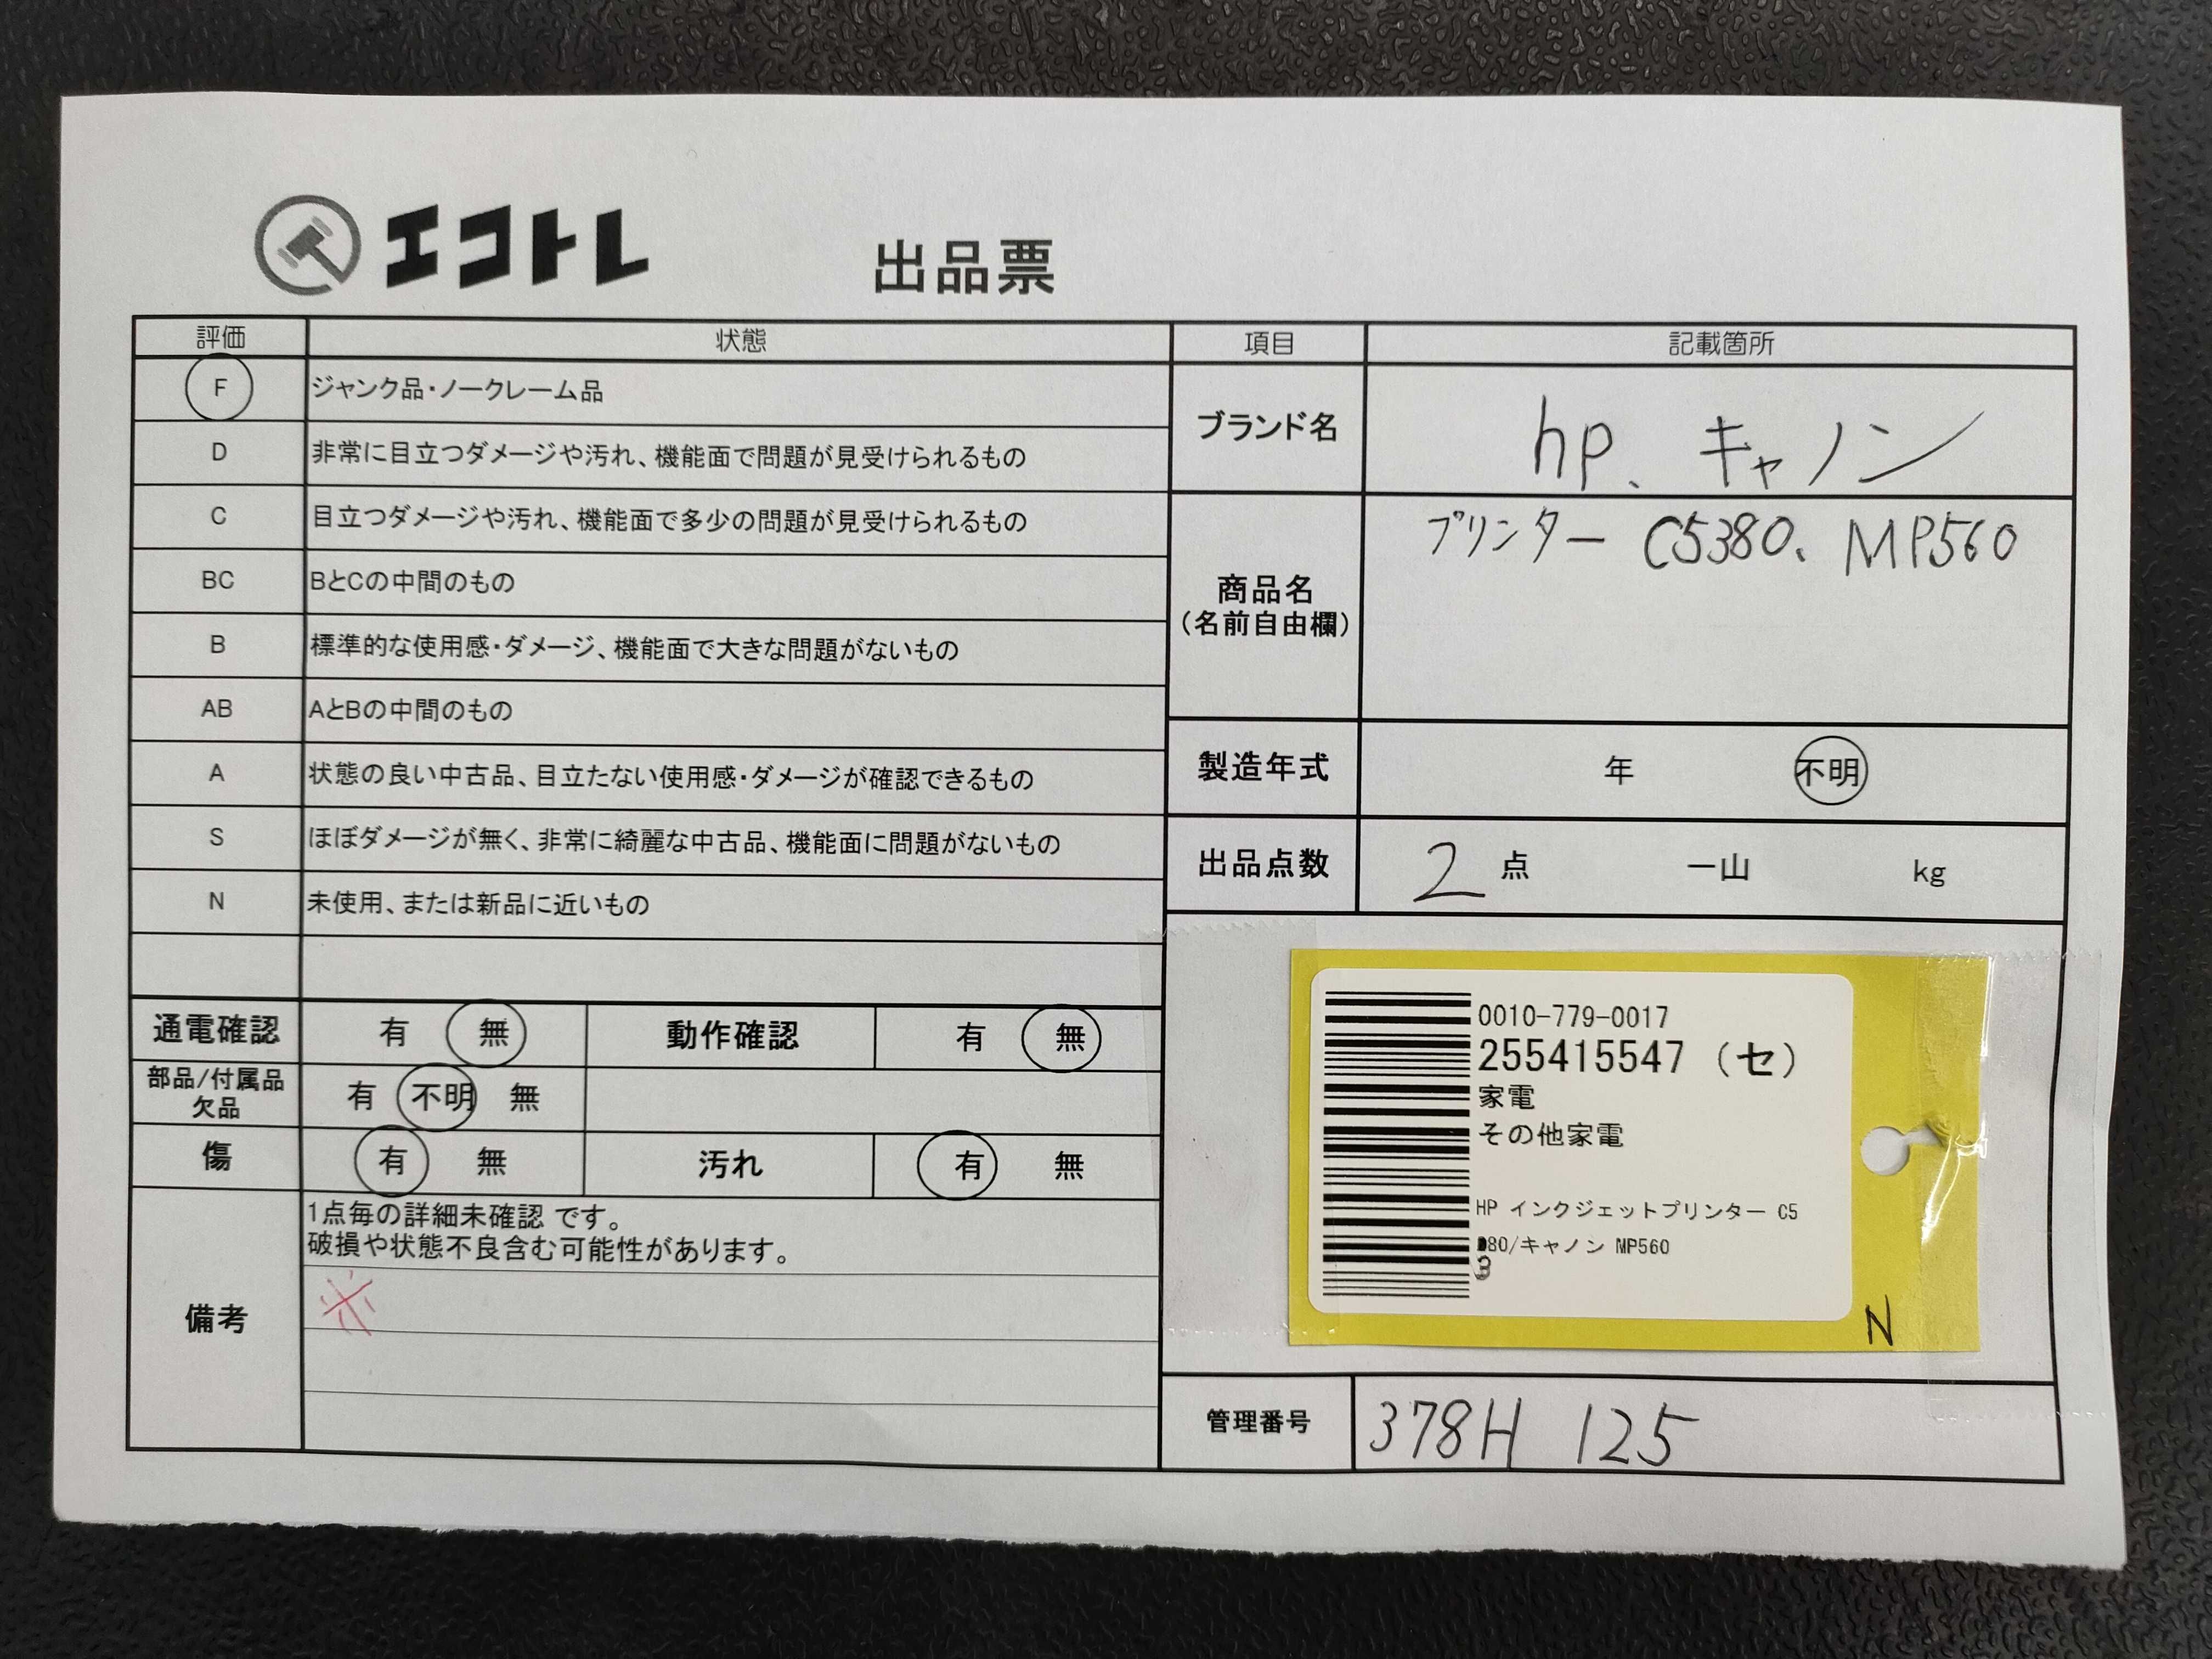 エコトレ
出品票
評価 状態
F ジャンク品・ノークレーム品
D 非常に目立つダメージや汚れ、機能面で問題が見受けられるもの
C 目立つダメージや汚れ、機能面で多少の問題が見受けられるもの
BC BとCの中間のもの
B 標準的な使用感・ダメージ、機能面で大きな問題がないもの
AB AとBの中間のもの
A 状態の良い中古品、目立たない使用感・ダメージが確認できるもの
S ほぼダメージが無く、非常に綺麗な中古品、機能面に問題がないもの
N 未使用、または新品に近いもの
通電確認 有 無 動作確認 有 無
部品/付属品
欠品
有 不明 無
傷 有 無 汚れ 有 無
備考
1点毎の詳細未確認 です。
破損や状態不良含む可能性があります。
※
項目 記載箇所
ブランド名 hp、キャノン
商品名
(名前自由欄)
プリンター C5380、MP560
製造年式 年 不明
出品点数 2 点 一山 kg
0010-779-0017
255415547 (セ)
家電
その他家電
HP インクジェットプリンター C5
380/キャノン MP560
3
N
管理番号 378H 125